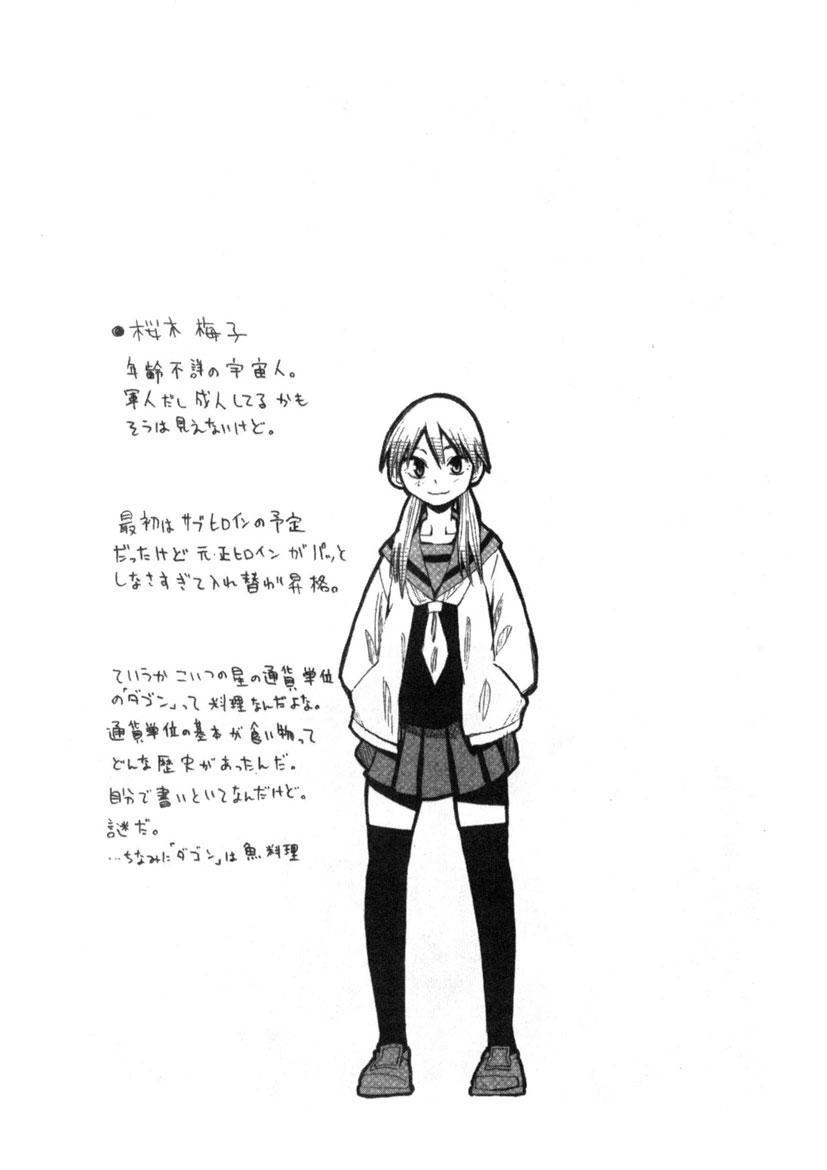 ●桜木 梅子
年齢不詳の宇宙人。
軍人だし成人してるかも
そうは見えないけど。
最初はサブヒロインの予定
だったけど元・正ヒロインがパッと
しなさすぎて入れ替わり昇格。
ていうかこいつの星の通貨単位
の「ダゴン」って料理なんだよな。
通貨単位の基本が食い物って
どんな歴史があったんだ。
自分で書いといてなんだけど。
謎だ。
…ちなみに「ダゴン」は魚料理